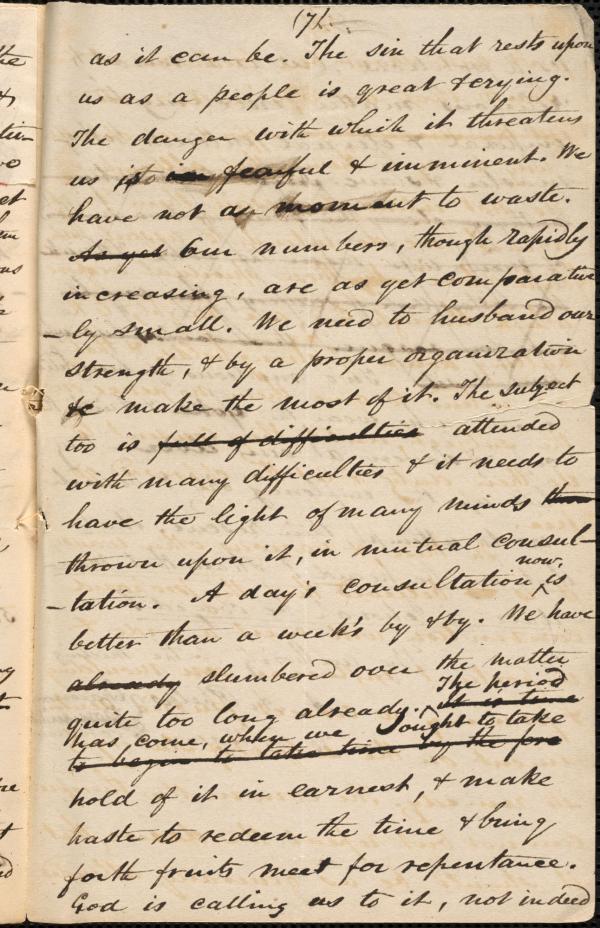 (7).
as it can be. The sin that rests upon
us as a people is great & crying.
The danger with which it threatens
us is fearful & imminent. We
have not a moment to waste.
As yet Our numbers, though rapidly
increasing, are as yet comparative
-ly small. We need to husband our
strength, & by a proper organization
to make the most of it. The subject
too is full of difficulties attended
with many difficulties & it needs to
have the light of many minds
thrown upon it, in mutual consul-
-tation. A day's consultation now, is
better than a week's by & by. We have
already slumbered over the matter
quite too long already. The period it is time
has come, when we ought to take
to begin to take time by the fore
hold of it in earnest, & make
haste to redeem the time & bring
forth fruits meet for repentance.
God is calling us to it, not indeed